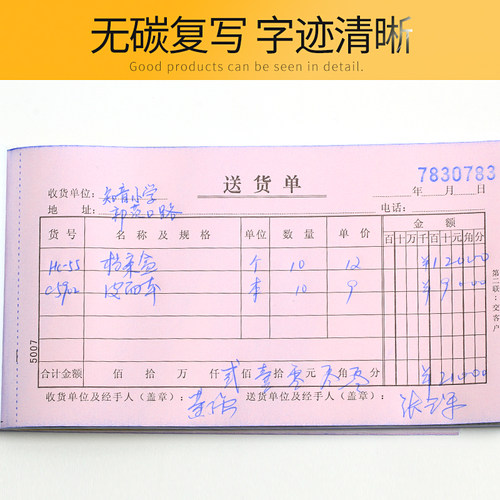 无碳复写 字迹清晰
Good products can be seen in detail.
送货单
7830783
收货单位: 知音小学
年 月 日
地 址:
电话:
货号 名称及规格 单位 数量 单价 金额
百 十 万 千 百 十 元 角 分
HC-55 档案盒 个 10 12 ¥12000
C5902 皮面本 本 10 9 ¥9000
合计金额 佰 拾 万 仟 贰 佰 壹 拾 零 元 零 角 零 分 ¥21000
收货单位及经手人(盖章): 送货单位及经手人(盖章):
5007
第二联:交客户